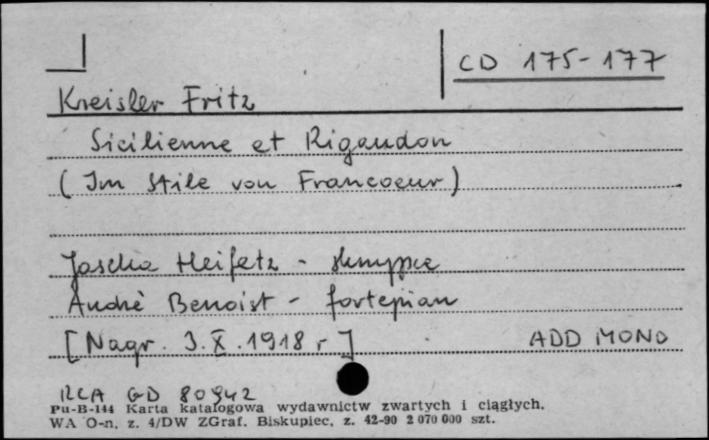 CD 175-177
Kreisler Fritz
Sicilienne et Rigaudon
(Im Stile von Francoeur)
Jascha Heifetz - skrzypce
André Benoist - fortepian
[Nagr. 3.X.1918 r]
ADD MONO
RCA GD 80942
Pu-B-144 Karta katalogowa wydawnictw zwartych i ciągłych.
WA O-n. z. 4/DW ZGraf. Biskupiec, z. 42-90 2 070 000 szt.